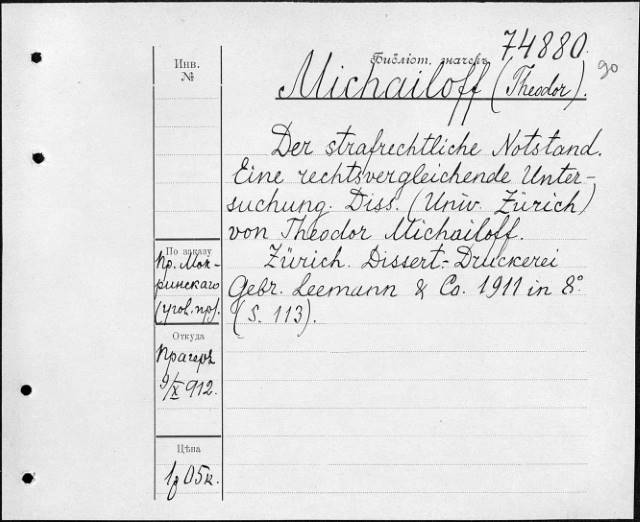 74880.
Библіот. значекъ
90
Инв.
№
Michailoff (Theodor).
Der strafrechtliche Notstand.
Eine rechtsvergleichende Unter-
suchung. Diss. (Univ. Zürich)
von Theodor Michailoff.
Zürich. Dissert.-Druckerei
Gebr. Leemann & Co. 1911 in 8º
(S. 113).
По заказу
Пр. Мок-
ринскаго
(угол. пр).
Откуда
Прагеръ
9/X 912.
Цѣна
1р 05к.